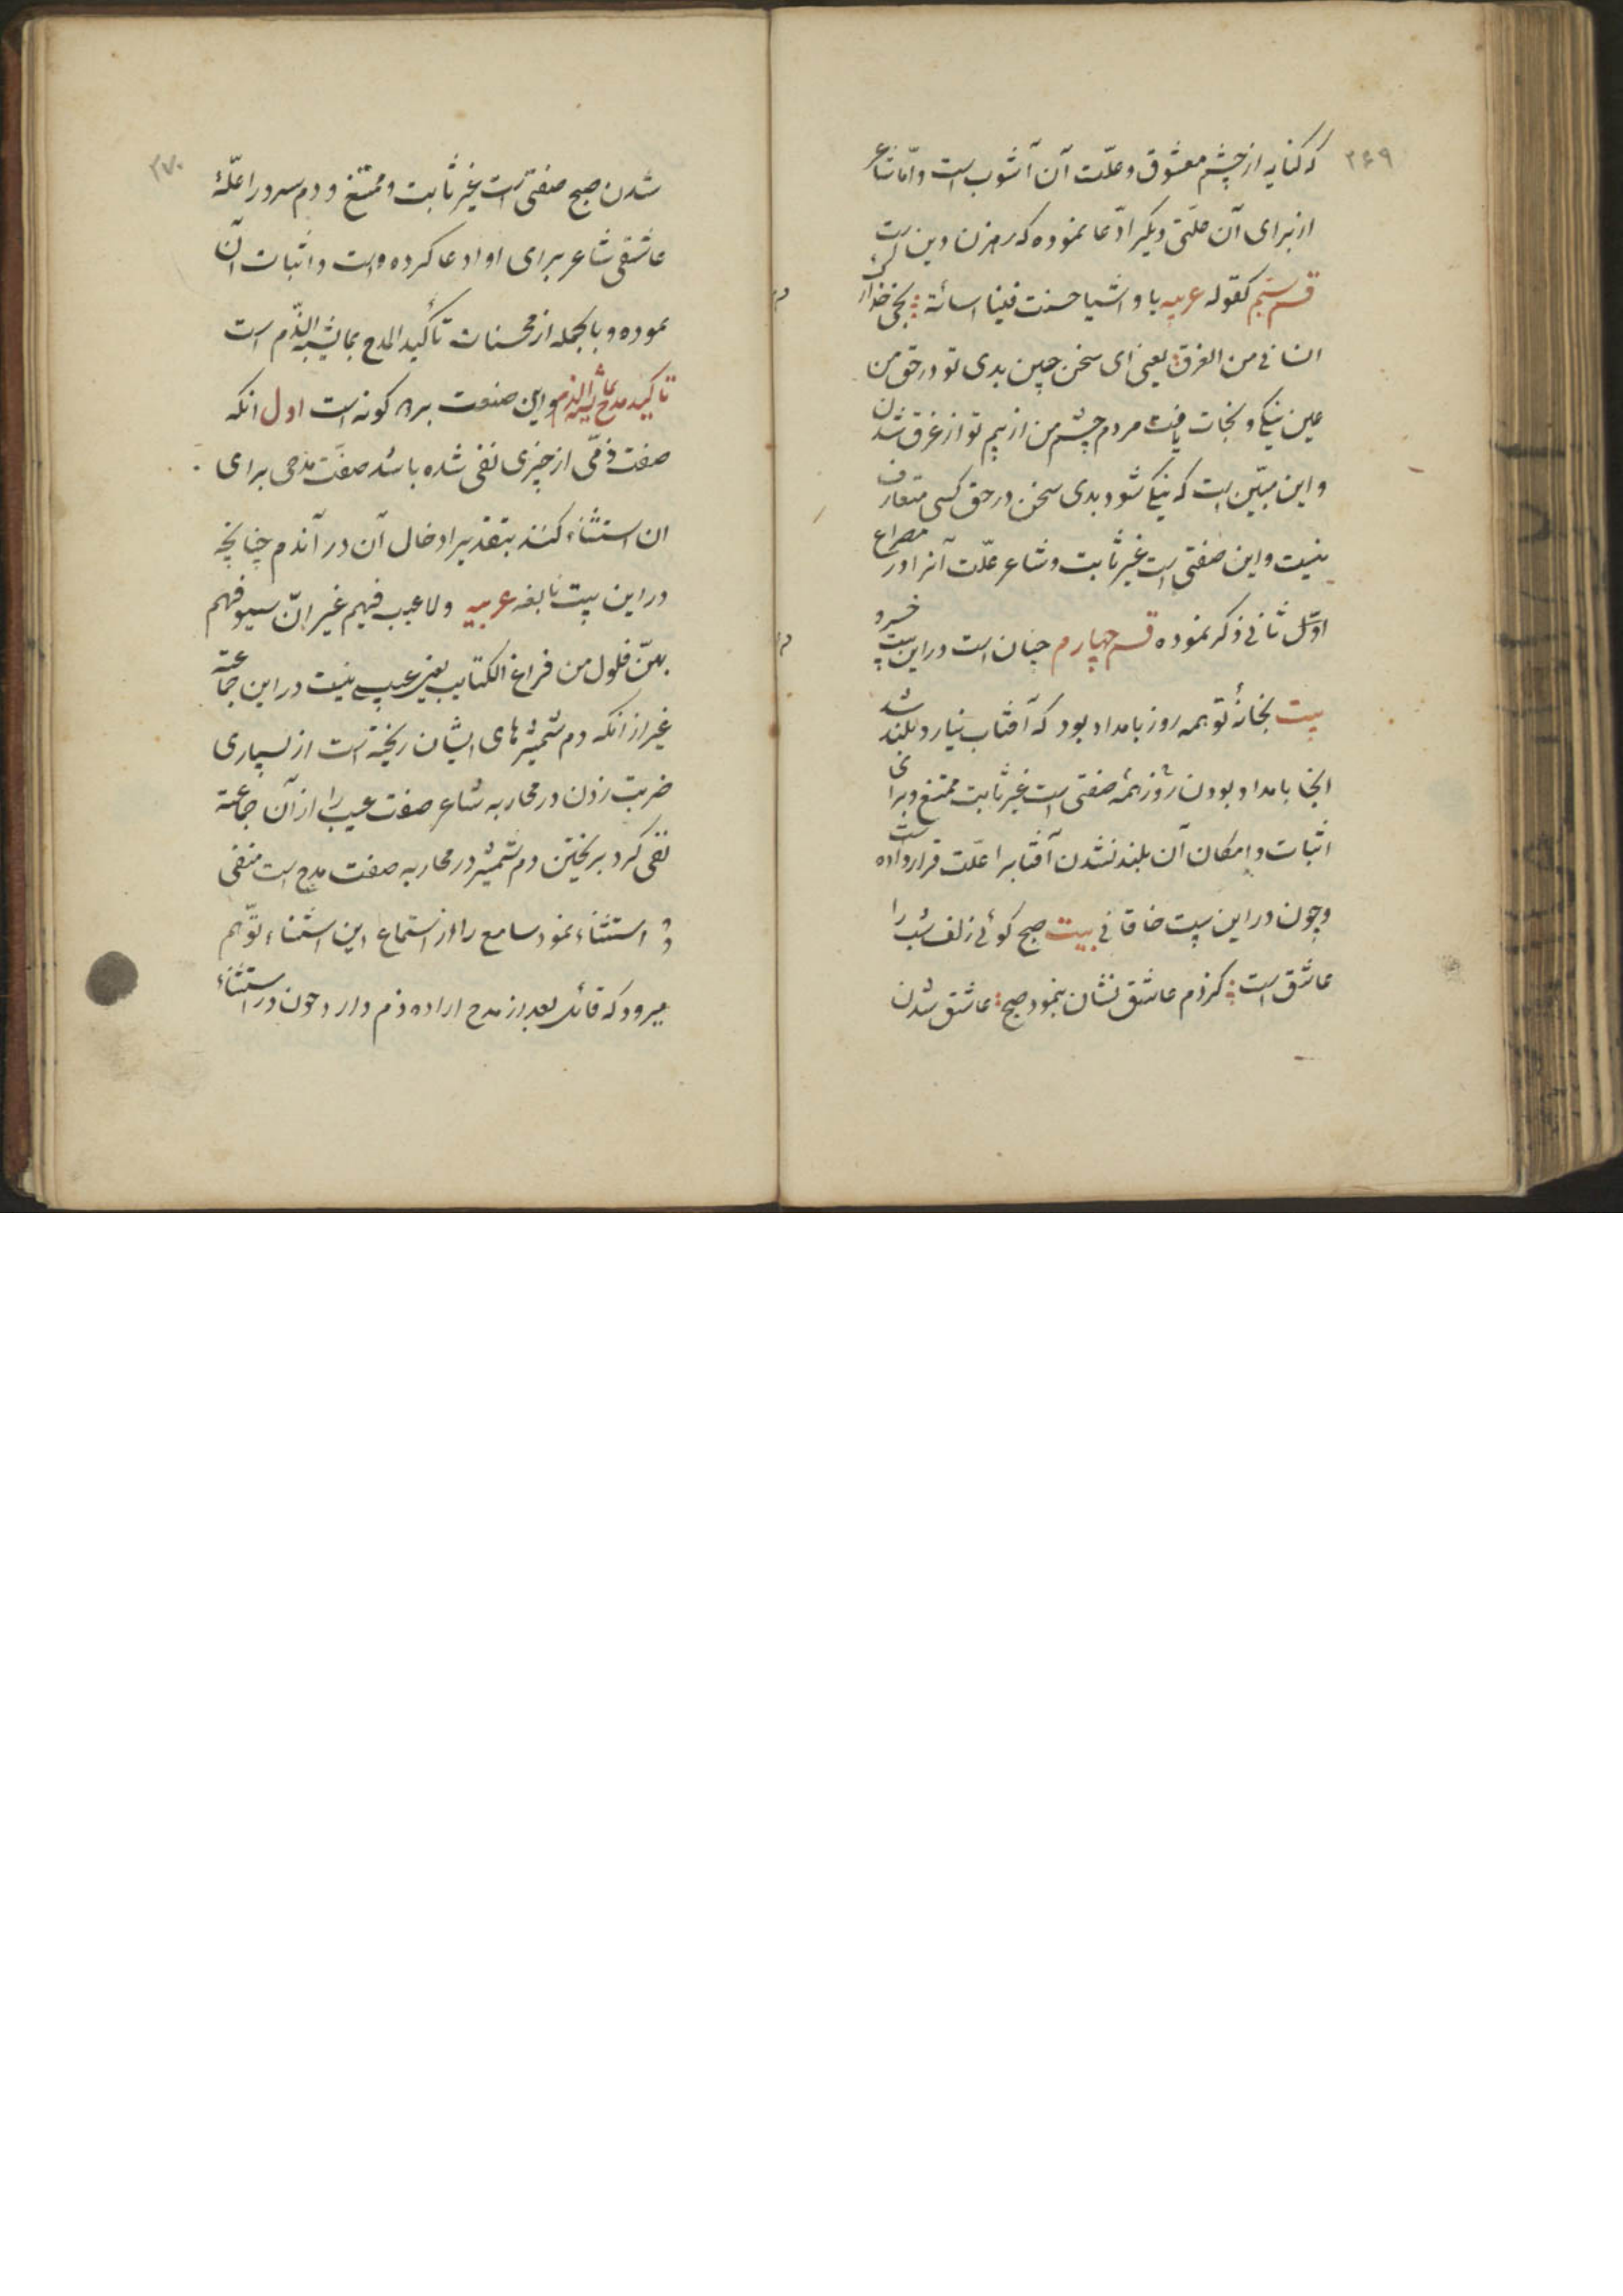 ۲۶۹
که کنایه از چشم معشوق و علّت آن آشوب است و امّا شاعر
از برای آن علّتی دیگر ادّعا نموده که رهزن دین است
قسم سیّم کقوله عربیه یا واشیا حسنت فینا اسائته نجی حذارک
انسانی من الغرق یعنی ای سخن چین بدی تو در حق من
عین نیکی و نجات یافت مردم چشم من از بیم تو از غرق شدن
و این مبیّن است که نیکی شود بدی سخن در حق کسی متعارف
نیست و این صفتی است غیر ثابت و شاعر علّت آنرا در مصراع
اوّل ثانی ذکر نموده قسم چهارم چنان است در این بیت خسرو
بیت بخانهٔ تو همه روز بامداد بود که آفتاب نیارد بلند شد
اینجا بامداد بودن روز همه صفتی است غیر ثابت ممتنع و برای
اثبات و امکان آن بلند نشدن آفتابرا علّت قرار داده است
و چون در این بیت خاقانی بیت صبح گوئی زلف شب را
عاشق است کز دم عاشق نشان بنمود صبح عاشق شدن
۲۷۰
شدن صبح صفتی است غیر ثابت و ممتنع و دم سرد را علّهٔ
عاشقی شاعر برای او ادعا کرده است و اثبات آن
نموده و بالجمله از محسنات تأکید المدح بما یشبه الذّم است
تاکید مدح بما یشبه الذم و این صنعت بر دو کونه است اول انکه
صفت ذمّی از چیزی نفی شده باشد صفت مدحی برای
ان استثناء کنند بتقدیر ادخال آن در آن ذم چنانچه
در این بیت نابغه عربیه ولا عیب فیهم غیر انّ سیوفهم
بهنّ فلول من قراع الکتایب یعنی عیبی نیست در این جماعة
غیر از انکه دم شمشیرهای ایشان ریخته است از بسیاری
ضربت زدن در محاربه شاعر صفت عیب را از آن جماعة
نفی کرد بریختن دم شمشیر در محاربه صفت مدح است منفی
استثناء نمود سامع را از استماع این استثناء توّهم
میرود که قائل بعد از مدح اراده ذم دارد چون در استثناء